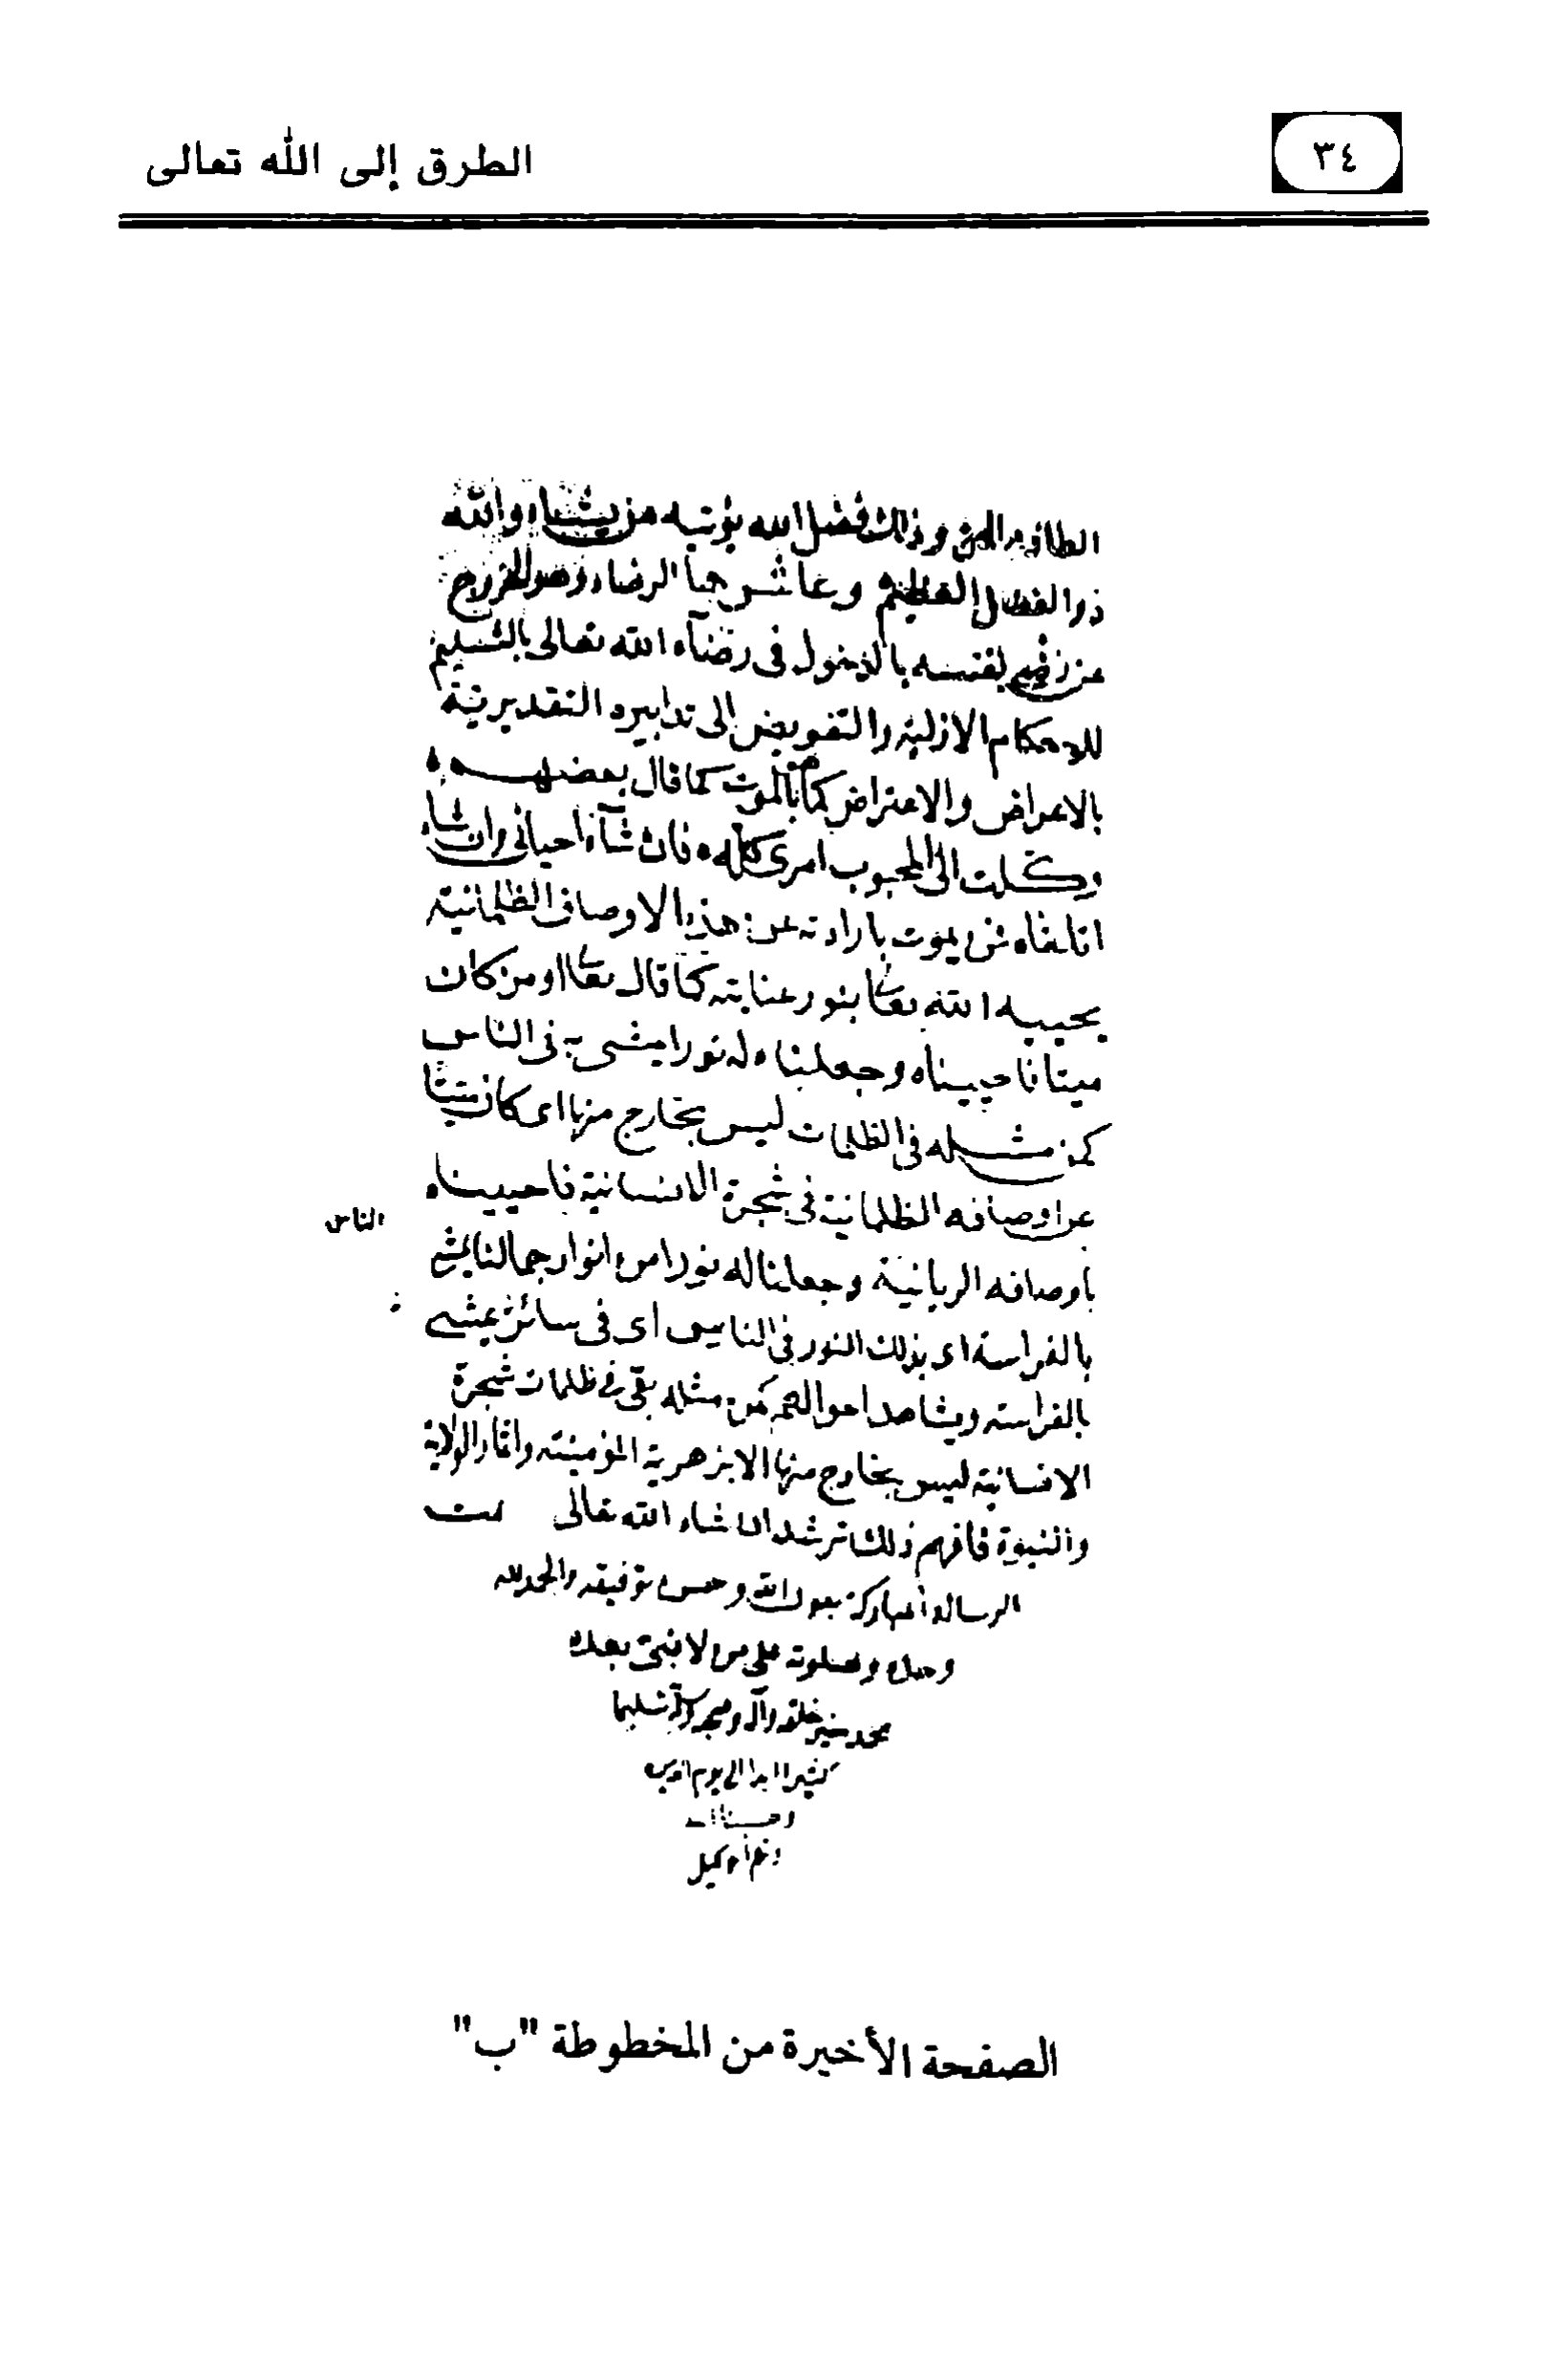 ٣٤
الطرق إلى الله تعالى
وذلك فضل الله يؤتيه من يشاء والله
ذو الفضل العظيم وعاشرها الرضاء وهو الخروج
عن رضى نفسه بالدخول فى رضاء الله تعالى بالتسليم
للاحكام الازلية والتفويض الى تدابيره التقديرية
بالاعراض والاعتراض كما بالموت كما قال بعضهم
وكلت الى المحبوب امرى كله فان شاء احيانى وان شاء
اتلفا فمن يموت بارادته عن هذه الاوصاف الظلمانية
يحييه الله تعا بنور عنايته كما قال تعا اومن كان
ميتا فاحييناه وجعلنا له نورا يمشى به فى الناس
كمن مثله فى الظلمات ليس بخارج منها اى كان ميتا
عن اوصافه الظلمانية فى شجرة الانسانية فاحييناه
باوصافه الربانية وجعلنا له نورا من انوار جمالنا يمشى
الناس
بالفراسة اى بذلك النور فى الناس اى فى سائر يمشى
بالفراسة ويشاهد احوالهم كمن مثله بقى فى ظلمات شجرة
الانسانية ليس بخارج منها الا بزهرية المؤمنية واثار الولاية
والنبوة فافهم ذلك ترشد ان شاء الله تعالى تمت
الرسالة المباركة بعون الله وحسن توفيقه والحمد لله
وحده وصلوته على من لا نبى بعده
محمد خير خلقه وآله وصحبه وسلم تسليما
كثيرا ابدا الى يوم الدين
وحسبنا الله
ونعم الوكيل
الصفحة الأخيرة من المخطوطة "ب"